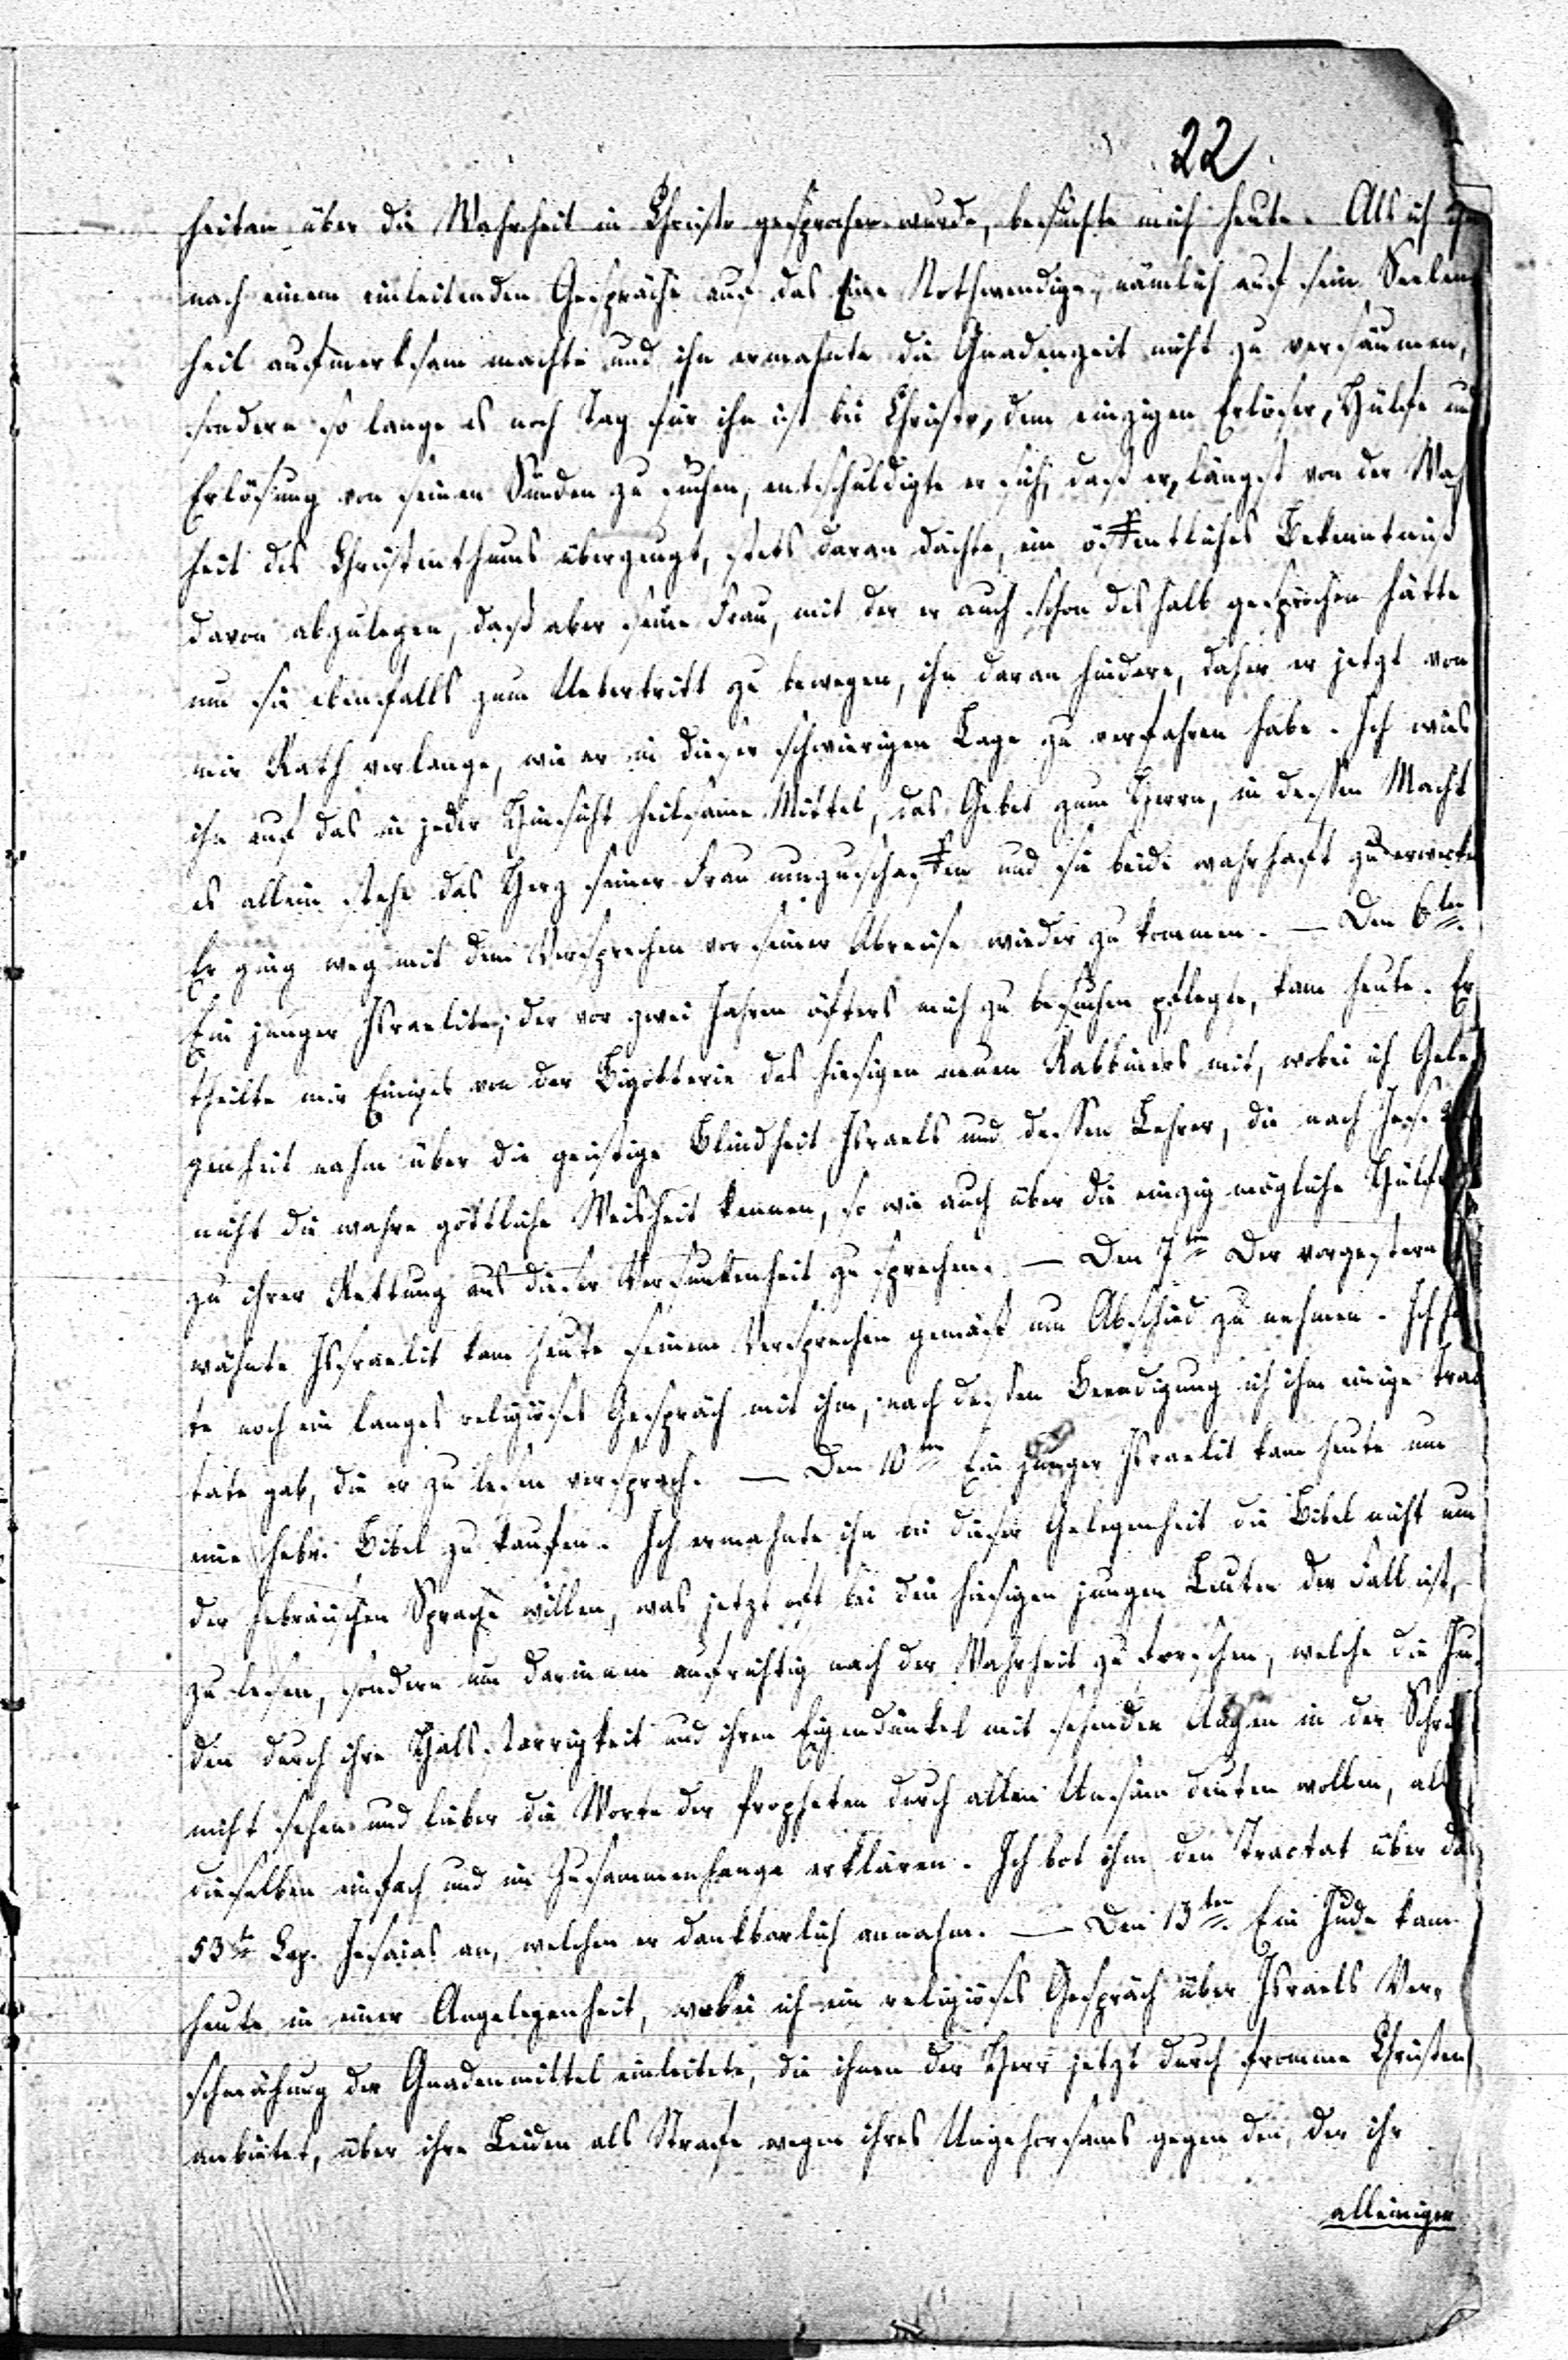 22
heiten über die Wahrheit in Christo gesprochen wurde, besuchte mich heute. Als ich ihn
nach einem einleitenden Gespräche auf das Eine Nothwendige, nämlich auf sein Seelen
heil aufmerksam machte und ihn ermahnte die Gnadenzeit nicht zu versäumen,
sondern so lange es noch Tag für ihn ist bei Christo, dem einzigen Erlöser, Hülfe und
Erlösung von seinen Sünden zu suchen, entschuldigte er sich, daß er, längst von der Wah
heit des Christenthums überzeugt, stets daran dächte, ein öffentliches Bekenntniß
davon abzulegen, daß aber seine Frau, mit der er auch schon deshalb gesprochen hätte
um sie ebenfalls zum Uebertritt zu bewegen, ihn daran hindere, daher er jetzt von
mir Rath verlange, wie er in dieser schwierigen Lage zu verfahren habe. Ich wies
ihn auf das in jeder Hinsicht heilsame Mittel, das Gebet zum Herrn, in dessen Macht
es allein stehe das Herz seiner Frau umzuschaffen und sie beide wahrhaft zu erwecken
Er ging weg mit dem Versprechen vor seiner Abreise wieder zu kommen. — Den 6ten
Ein junger Israelite, der vor zwei Jahren öfters mich zu besuchen pflegte, kam heute. Er
theilte mir Einiges von der Bigotterie des hiesigen neuen Rabbiners mit, wobei ich Gele
genheit nahm über die geistige Blindheit Israels und dessen Lehrer, die nach Jes.
nicht die wahre göttliche Weisheit kennen, so wie auch über die einzig mögliche Hülfe
zu ihrer Rettung aus dieser Versunkenheit zu sprechen. — Den 7ten Der vorgestern
wähnte Israelit kam heute seinem Versprechen gemäß um Abschied zu nehmen. Ich
te noch ein langes religiöses Gespräch mit ihm, nach dessen Beendigung ich ihm einige Trac
tate gab, die er zu lesen versprach. — Den 10ten Ein junger Israelit kam heute um
eine hebr. Bibel zu kaufen. Ich ermahnte ihn bei dieser Gelegenheit die Bibel nicht um
der hebräischen Sprache willen, was jetzt oft bei den hiesigen jungen Leuten der Fall ist,
zu lesen, sondern um darinnen aufrichtig nach der Wahrheit zu forschen, welche die Ju,
den durch ihre Halsstarrigkeit und ihren Eigendünkel mit sehenden Augen in der Schrift
nicht sehen und lieber die Worte der Propheten durch allen Unsinn deuten wollen, als
dieselben einfach und im Zusammenhange erklären. Ich bot ihm den Tractat über das
53te Cap. Jesaias an, welchen er dankbarlich annahm. — Den 13ten Ein Jude kam
heute in einer Angelegenheit, wobei ich ein religiöses Gespräch über Israels Ver,
schmähung der Gnadenmittel einleitete, die ihnen der Herr jetzt durch fromme Christen
anbietet, über ihre Leiden als Strafe wegen ihres Ungehorsams gegen den, der ihr
alleiniger